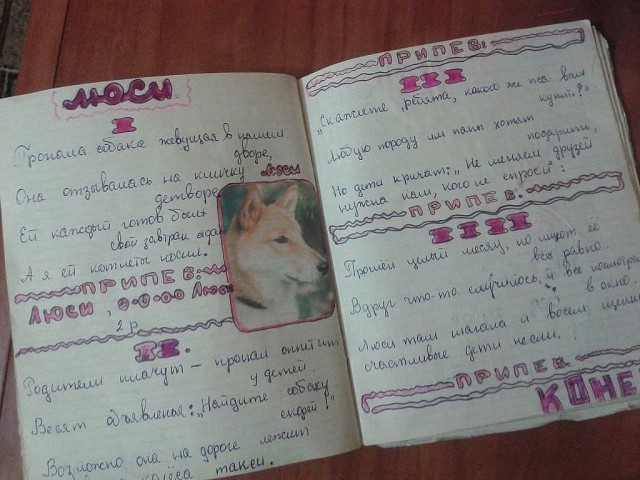 ЛЮСИ
I
Пропала собака живущая в нашем
дворе,
Она отзывалась на кличку Люси
детворе
Ей каждый готов был
свой завтрак отдать
А я ей котлеты носил.
ПРИПЕВ:
ЛЮСИ, О-О-О-О Люси
2 р.
II.
Родители плачут – пропал аппетит
у детей.
Висят объявленья: „Найдите собаку
скорей!"
Возможно она на дороге лежит
колёса такси.
ПРИПЕВ:
III
„Скажите, ребята, какого же пса вам
купить?"
Любую породу им папы хотят
подарить,
Но дети кричат: „Не меняем друзей
нужна нам, кого не спроси":
ПРИПЕВ:
IIII
Прошёл целый месяц, но ищут её
всё равно.
Вдруг что-то случилось, и все посмотрели
в окно.
Люси там шагала и восемь щенков
счастливые дети несли.
ПРИПЕВ.
КОНЕ